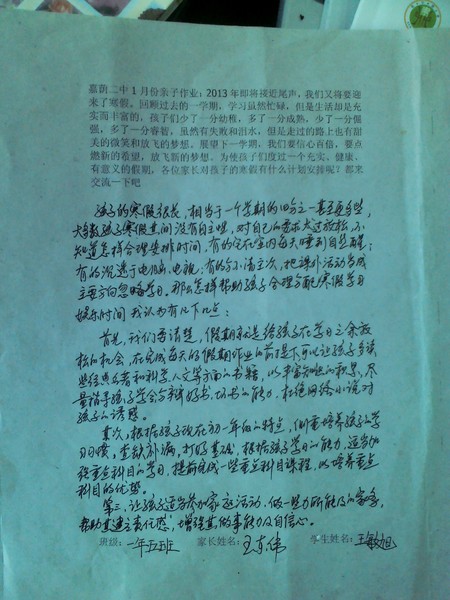 嘉荫二中1月份亲子作业：2013年即将接近尾声，我们又将要迎
来了寒假。回顾过去的一学期，学习虽然忙碌，但是生活却是充
实而丰富的，孩子们少了一分幼稚，多了一分成熟，少了一分倔
强，多了一分睿智，虽然有失败和泪水，但是走过的路上也有甜
美的微笑和放飞的梦想。展望下一学期，我们要信心百倍，要点
燃新的希望，放飞新的梦想。为使孩子们度过一个充实、健康、
有意义的假期，各位家长对孩子的寒假有什么计划安排呢？都来
交流一下吧
孩子的寒假很长，相当于一个学期的四分之一甚至更多些，
大多数孩子寒假里间没有自主性，对自己的要求太过放松，不
知道怎样合理安排时间，有的宅在室内每天睡到自然醒；
有的沉迷于电脑、电视；有的分不清主次，把课外活动当成
主要方向忽略学习。那么怎样帮助孩子合理分配寒假学习
娱乐时间我认为有以下几点：
首先，我们要清楚，假期就是给孩子在学习之余放
松的机会，在完成每天的假期作业的前提下可以让孩子多读
些经典名著和科学人文等方面的书籍，以丰富知识的积累，尽
量指导孩子学会分辨好书、坏书的能力，杜绝网络小说对
孩子的诱惑。
其次，根据孩子现在初一年级的特点，侧重培养孩子的学
习习惯，查缺补漏，打好基础，根据孩子学习的能力，适当加
强重点科目的学习，提前完成一些重点科目课程，以培养重点
科目的优势。
第三，让孩子适当参加家庭活动，做一些力所能及的家务，
帮助其建立责任感，增强其做事能力及自信心。
班级：一年五班 家长姓名：王东伟 学生姓名：王敏旭